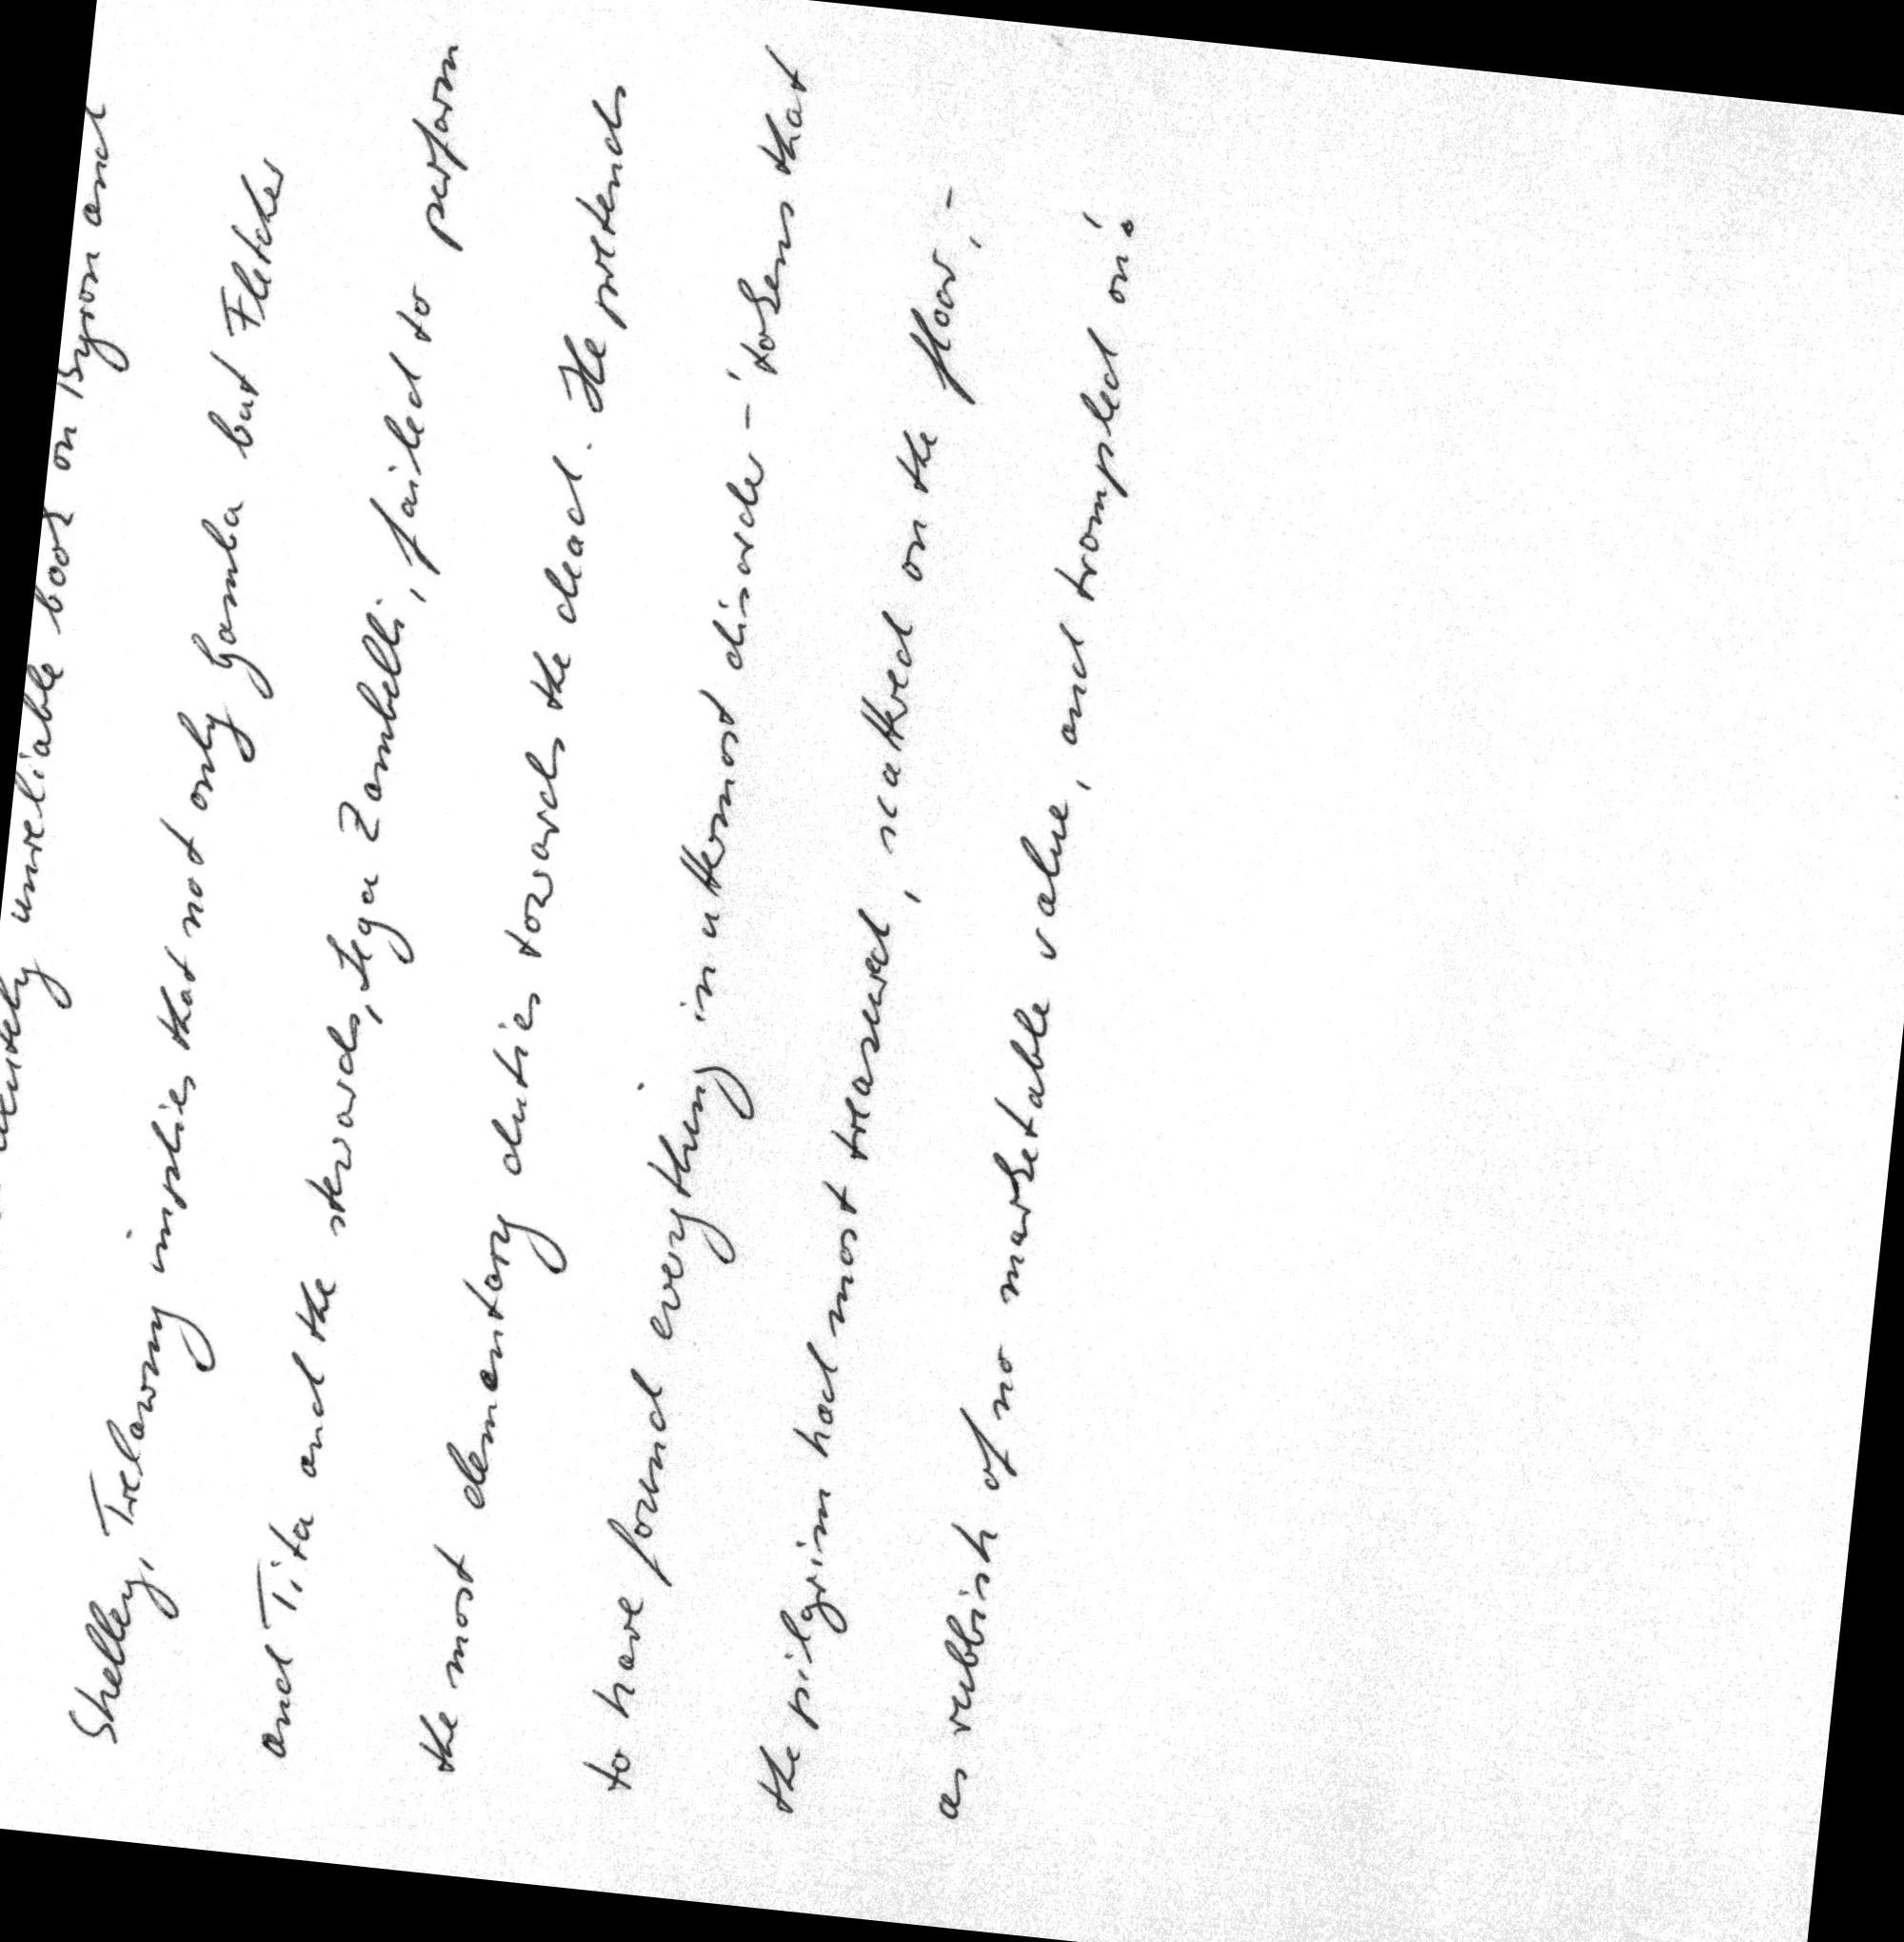 unreliable book on Byron and
Shelley, Trelawny implies that not only Gamba but Fletcher
and Tita and the stewards, Lega Zambelli, failed to perform
the most elementary duties towards the dead. He pretends
to have found everything in uttermost disorder - 'tokens that
the pilgrim had most treasured, scattered on the floor, -
as rubbish of no marketable value, and trampled on'.